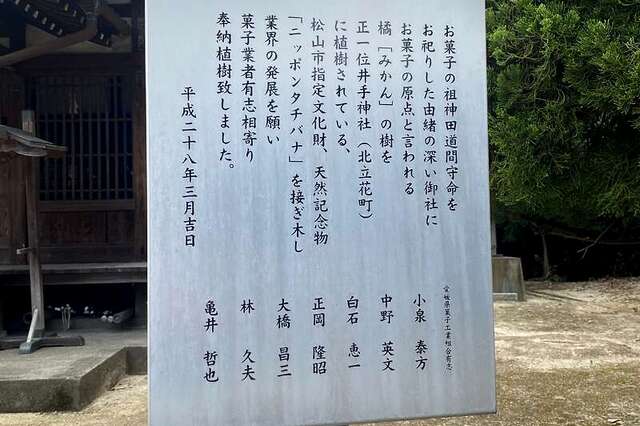 お菓子の祖神田道間守命を
お祀りした由緒の深い御社に
お菓子の原点と言われる
橘「みかん」の樹を
正一位井手神社（北立花町）
に植樹されている、
松山市指定文化財、天然記念物
「ニッポンタチバナ」を接ぎ木し
業界の発展を願い
菓子業者有志相寄り
奉納植樹致しました。
平成二十八年三月吉日
愛媛県菓子工業組合有志
小泉 泰方
中野 英文
白石 恵一
正岡 隆昭
大橋 昌三
林 久夫
亀井 哲也